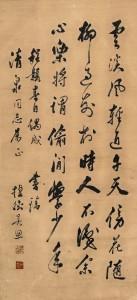 雲淡風輕近午天傍花隨
柳過前川時人不識余
心樂將謂偷閒學少年
程顥春日偶成 書請
清泉同志屬正